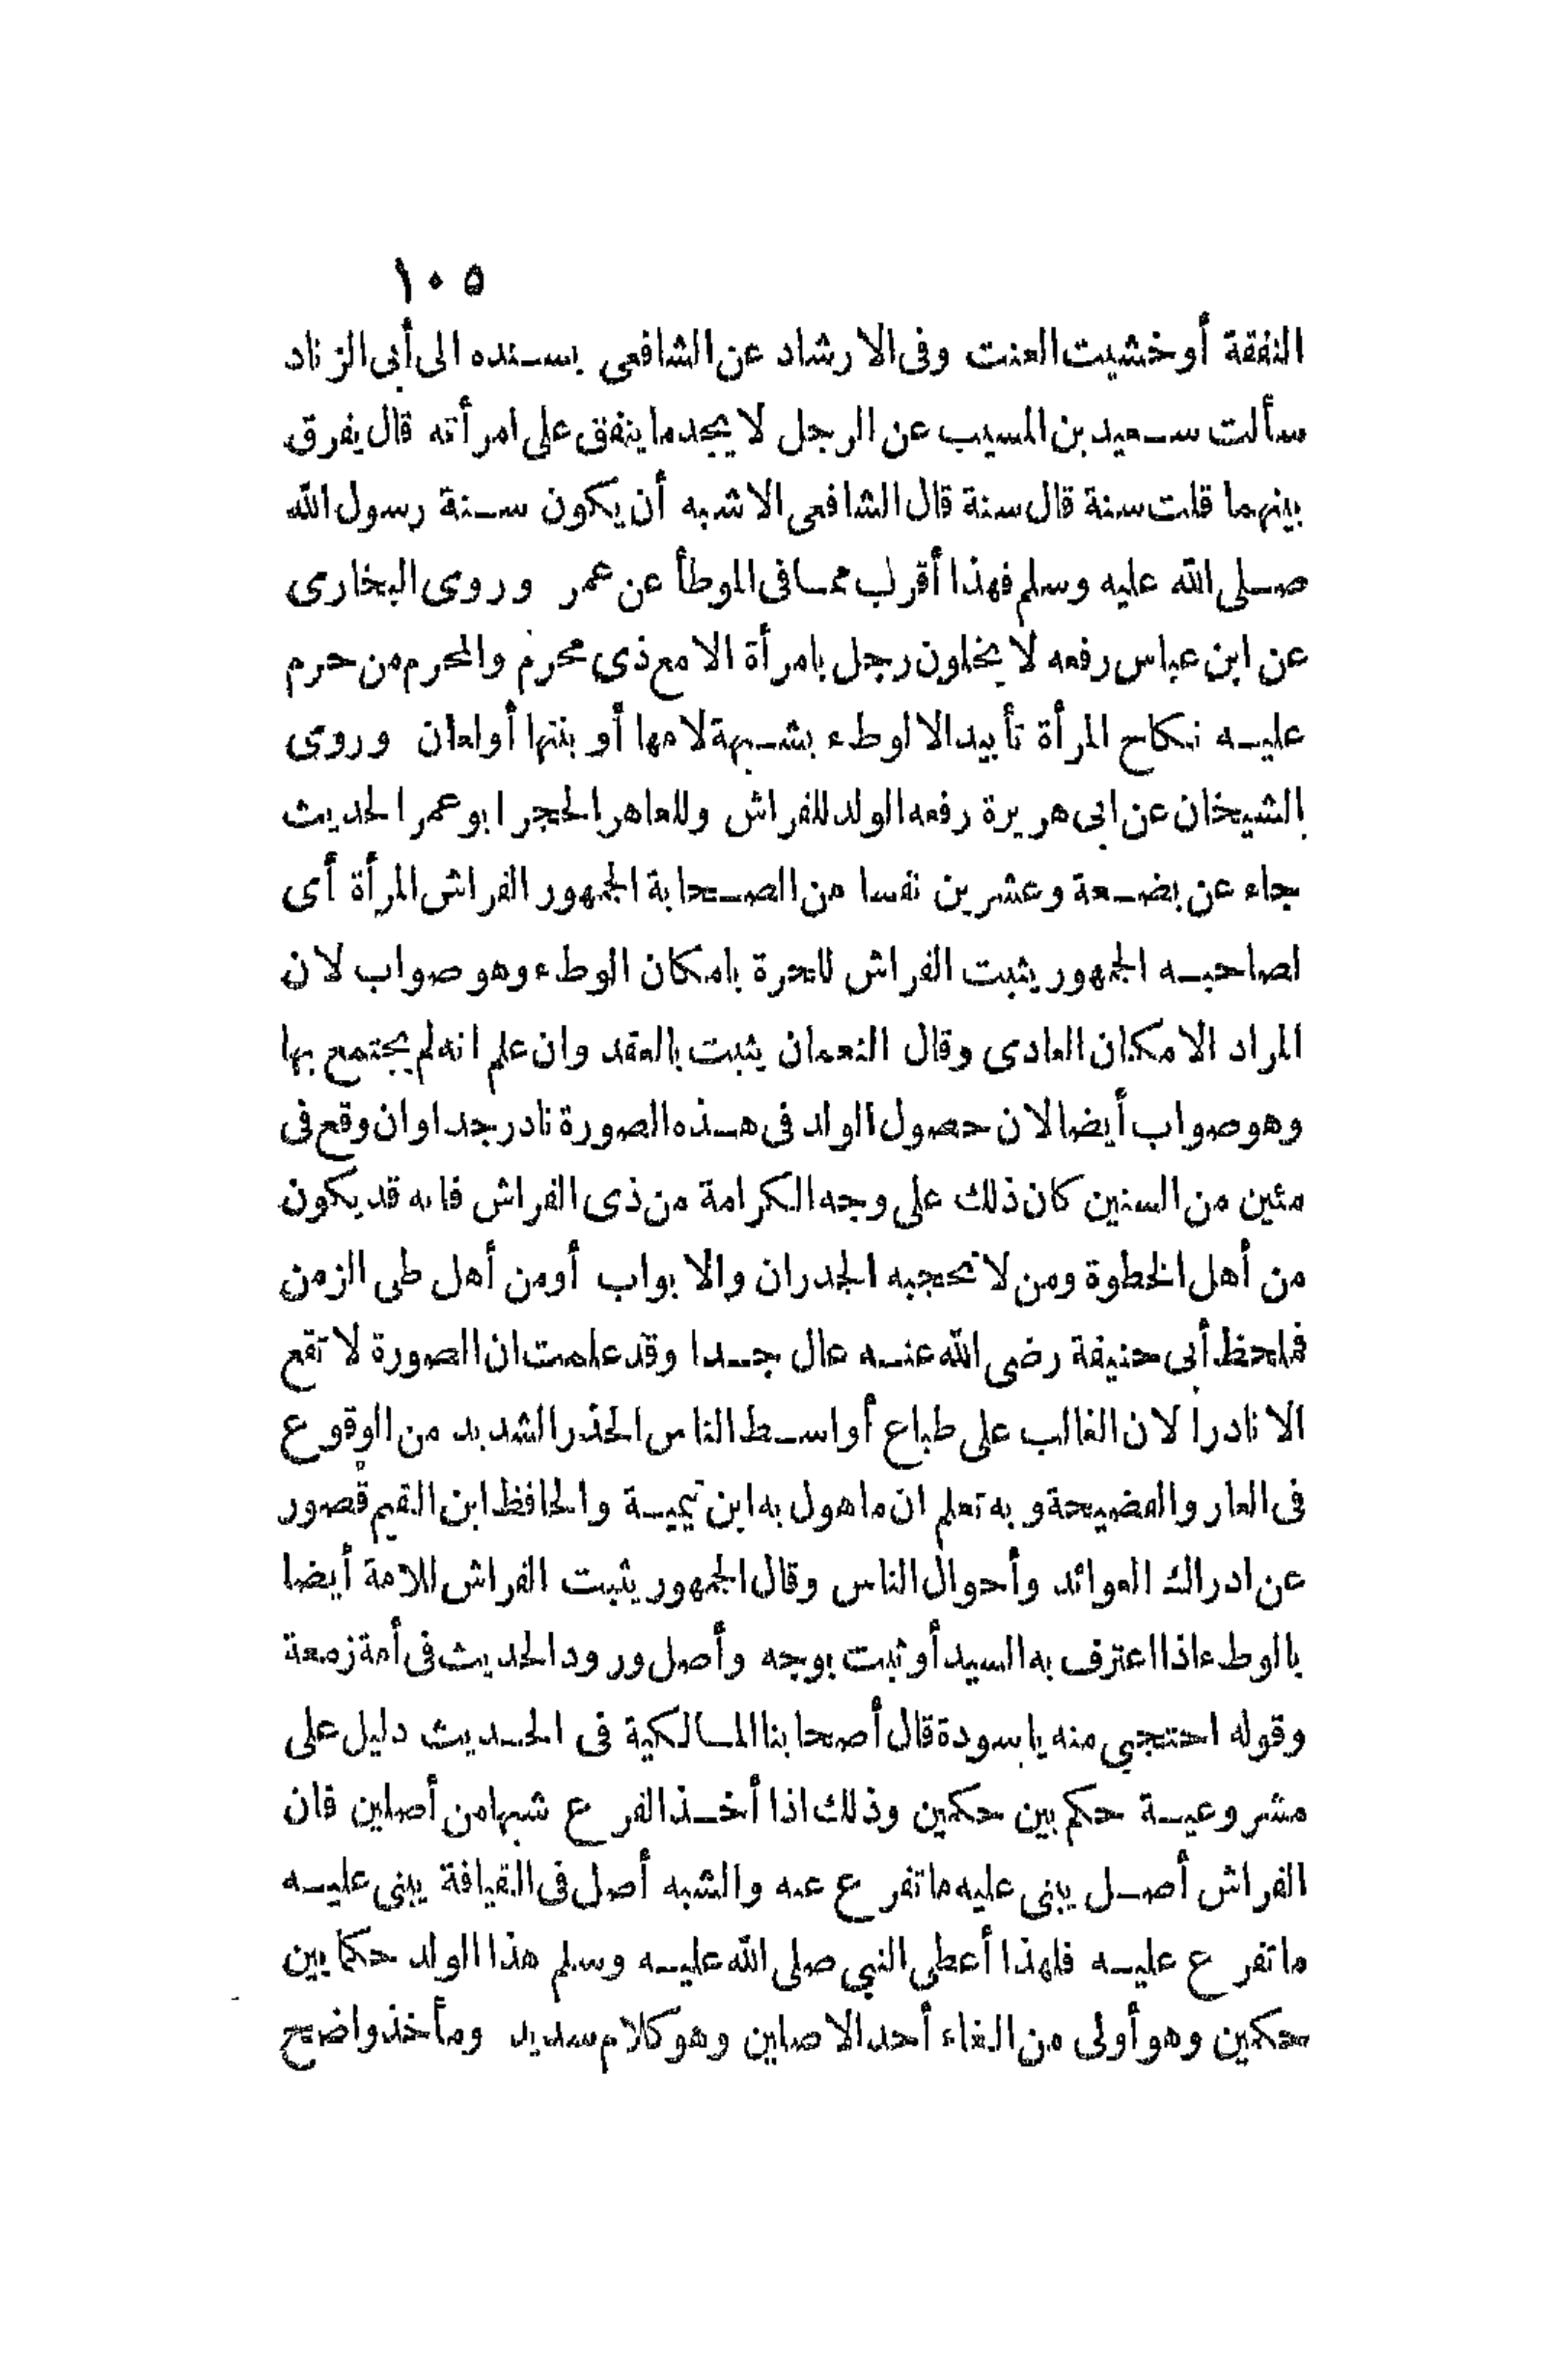 ١٠٥
النفقة أو خشيت العنت وفى الارشاد عن الشافعى بسنده الى أبى الزناد
سألت سعيد بن المسيب عن الرجل لا يجد ما ينفق على امرأته قال يفرق
بينهما قلت سنة قال سنة قال الشافعى الاشبه أن يكون سنة رسول الله
صلى الله عليه وسلم فهذا أقرب مما فى الموطأ عن عمر وروى البخارى
عن ابن عباس رفعه لا يخلون رجل بامرأة الا مع ذى محرم والمحرم من حرم
عليه نكاح المرأة تأبيدا لا لوطء بشبهة لامها أو بنتها أو لعان وروى
الشيخان عن ابى هريرة رفعه الولد للفراش وللعاهر الحجر ابو عمر الحديث
جاء عن بضعة وعشرين نفسا من الصحابة الجمهور الفراش المرأة أى
لصاحبه الجمهور يثبت الفراش للحرة بامكان الوطء وهو صواب لان
المراد الامكان العادى وقال النعمان يثبت بالعقد وان علم انه لم يجتمع بها
وهو صواب أيضا لان حصول الولد فى هذه الصورة نادر جدا وان وقع فى
مئين من السنين كان ذلك على وجه الكرامة من ذى الفراش فانه قد يكون
من أهل الخطوة ومن لا تحجبه الجدران والابواب أو من أهل طى الزمن
فلحظ أبى حنيفة رضى الله عنه عال جدا وقد علمت ان الصورة لا تقع
الا نادرا لان الغالب على طباع أواسط الناس الحذر الشديد من الوقوع
فى العار والفضيحة وبه تعلم ان ما هول به ابن تيمية والحافظ ابن القيم قصور
عن ادراك العوائد وأحوال الناس وقال الجمهور يثبت الفراش للامة أيضا
بالوطء اذا اعترف به السيد أو ثبت بوجه وأصل ورود الحديث فى أمة زمعة
وقوله احتجبى منه يا سودة قال أصحابنا المالكية فى الحديث دليل على
مشروعية حكم بين حكمين وذلك اذا أخذ الفرع شبها من أصلين فان
الفراش أصل يبنى عليه ما تفرع عنه والشبه أصل فى القيافة يبنى عليه
ما تفرع عليه فلهذا أعطى النبي صلى الله عليه وسلم هذا الولد حكما بين
حكمين وهو أولى من الغاء أحد الاصلين وهو كلام سديد ومأخذ واضح